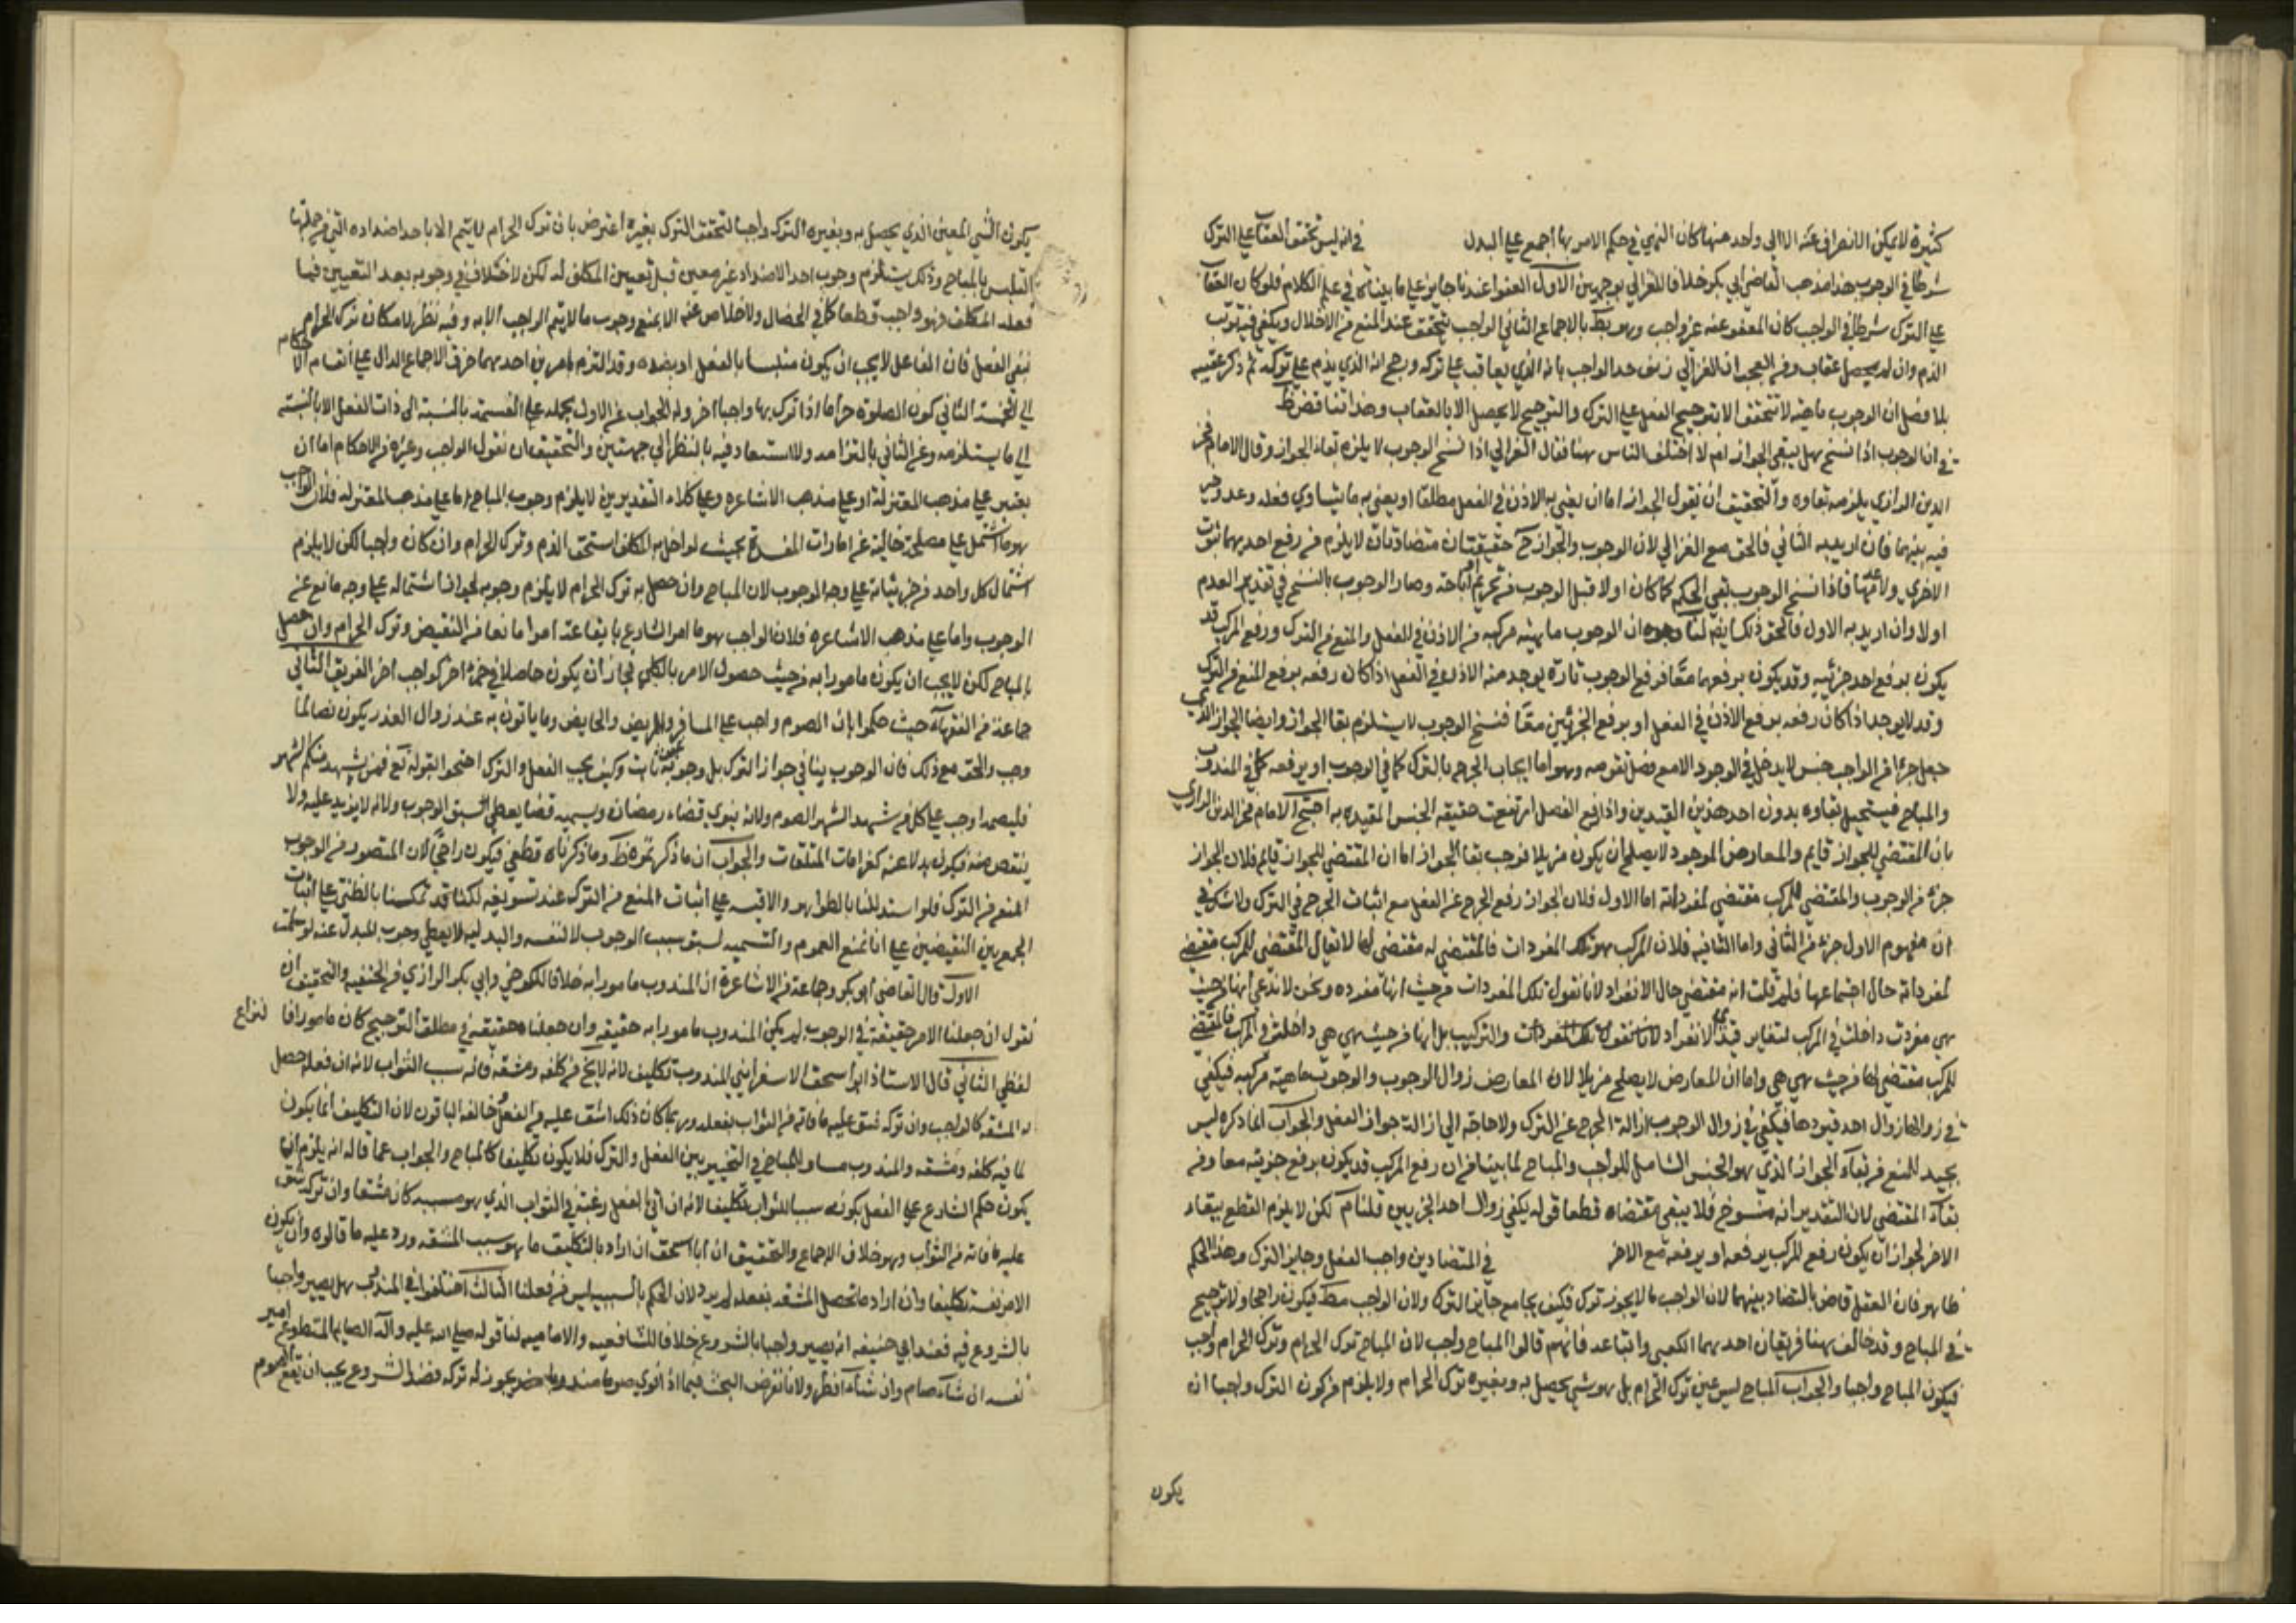 كثيرة لا يمكن الانصراف عنه الا الى واحد منها كان النهي في حكم الامر بها اجمع على البدل في انه ليس تحقق العقاب على الترك
شرطا في الوجوب هذا مذهب القاضي ابي بكر خلافا للغزالي بوجهين الاول العفو عندنا جايز على ما بيناه في علم الكلام فلو كان العقاب
على الترك شرطا في الواجب كان المعفو عنه غير واجب وهو بط بالاجماع الثاني الواجب يتحقق عند المنع من الاخلال ويكفي فيه ترتب
الذم وان لم يحصل عقاب ومن العجب ان الغزالي زيف حد الواجب بانه الذي يعاقب على تركه ورجح انه الذي يذم على تركه ثم ذكر عقيبه
بلا فصل ان الوجوب ماهية لا تتحقق الا بترجيح الفعل على الترك والترجيح لا يحصل الا بالعقاب وهذا تناقض ظ
في ان الوجوب اذا نسخ هل يبقى الجواز ام لا اختلف الناس هنا فقال الغزالي اذا نسخ الوجوب لا يلزم بقاء الجواز وقال الامام فخر
الدين الرازي يلزمه بقاوه والتحقيق ان نقول الجواز اما ان يعني به الاذن في الفعل مطلقا او يعني به ما يتساوي فعله وعدمه
فيه بينهما فان اريد به الثاني فالحق مع الغزالي لان الوجوب والجواز ح حقيقتان متضادتان لا يلزم من رفع احديهما ثبوت
الاخري ولا عدمها فاذا نسخ الوجوب بقي الحكم كما كان اولا قبل الوجوب من تحريم او اباحة وصار الوجوب بالنسخ في تقدير العدم
اولا وان اريد به الاول فالحق ذلك ايضا لنا وجوه ان الوجوب ماهية مركبة من الاذن في الفعل والمنع من الترك ورفع المركب قد
يكون برفع احد جزئيه وقد يكون برفعهما معا فرفع الوجوب تارة يوجد منه الاذن في الفعل اذا كان رفعه برفع المنع من الترك
وقد لا يوجد اذا كان رفعه برفع الاذن في الفعل او برفع الجزئين معا فنسخ الوجوب لا يستلزم بقا الجواز وايضا الجواز الذي
جعل جزءا من الواجب جنس لا يدخل في الوجود الا مع فصل تقومه وهو اما ايجاب الحرج بالترك كما في الوجوب او برفعه كما في المندوب
والمباح فيستحيل بقاوه بدون احد هذين القيدين واذا رفع الفصل ارتفعت حقيقة الجنس المقيدة به احتج الامام فخر الدين الرازي
بان المقتضي للجواز قايم والمعارض الموجود لا يصلح ان يكون مزيلا فوجب بقا الجواز اما ان المقتضي للجواز قايم فلان الجواز
جزء من الوجوب والمقتضي للمركب مقتضي لمفرداته اما الاول فلان الجواز رفع الحرج عن الفعل مع اثبات الحرج في الترك ولا شك في
ان مفهوم الاول جزء من الثاني واما الثانية فلان المركب هو تلك المفردات فالمقتضي له مقتضي لها لا يقال المقتضي للمركب مقتضي
لمفرداته حال اجتماعها فلم قلت انه مقتضي حال الانفراد لانا نقول تلك المفردات من حيث انها مفرده ونحن لا ندعي انها من حيث
هي مفردت داخلة في المركب لتغاير قيدي الانفراد والتركيب بل انها من حيث هي هي داخلة في المركب فالمقتضي
للمركب مقتضي لها من حيث هي هي واما ان المعارض لا يصلح مزيلا لان المعارض زوال الوجوب والوجوب ماهية مركبه فيكفي
في زوالها زوال احد قيودها فيكفي في زوال الوجوب ازالة الحرج عن الترك ولا حاجة الى ازالة جواز الفعل والجواب انما ذكره ليس
بجيد للمنع من بقاء الجواز الذي هو الجنس الشامل للواجب والمباح لما بينا من ان رفع المركب قد يكون برفع جزئيه معا ومن
بقاء المقتضي لان التقدير انه منسوخ فلا يبقى مقتضاه قطعا قوله يكفي زوال احد الجزيين قلنا م لكن لا يلزم القطع ببقاء
الاخر لجواز ان يكون رفع المركب برفعه او برفعه مع الاخر في المتضادين واجب الفعل وجايز الترك وهذا الحكم
ظاهر فان العقل قاض بالتضاد بينهما لان الواجب ما لا يجوز تركه فكيف يجامع جايز الترك ولان الواجب فيكون راجحا ولا ترجيح
في المباح وقد خالف هنا فريقان احدهما الكعبي واتباعه فانهم قالوا المباح واجب لان المباح ترك الحرام وترك الحرام واجب
فيكون المباح واجبا والجواب المباح ليس عين ترك الحرام بل هو شي يحصل به وبغيره ترك الحرام ولا يلزم من كون الترك واجبا ان
يكون
يكون الشي المعين الذي يحصل به وبغيره الترك واجبا لتحقق الترك بغيره اعترض بان ترك الحرام لا يتم الا باحد اضداده التي من جملتها
التلبس بالمباح وذلك يستلزم وجوب احد الاضداد غير معين قبل تعيين المكلف له لكن لا خلاف في وجوبه بعد التعيين فما
فعله المكلف فهو واجب قطعا كما في الخصال ولا خلاص عنه الا بمنع وجوب ما لا يتم الواجب الا به وفيه نظر لامكان ترك الحرام
بنفي الفعل فان الفاعل لا يجب ان يكون متلبسا بالفعل او بضده وقد التزم بامرين احدهما خرق الاجماع الدال على انقسام الاحكام
الى الخمسة الثاني كون الصلوة حراما اذا ترك بها واجبا اخر وله الجواب عن الاول بحمله على القسمة بالنسبة الى ذات الفعل لا بالنسبة
الى ما يستلزمه وعن الثاني بالتزامه ولا استبعاد فيه بالنظر الى جهتين والتحقيق ان نقول الواجب وغيره من الاحكام اما ان
يفسر على مذهب المعتزلة او على مذهب الاشاعره وعلى كلاء التقديرين لا يلزم وجوب المباح اما على مذهب المعتزله فلان الواجب
هو ما اشتمل على مصلحة خالية عن امارات المفسدة بحيث لو اخل به المكلف استحق الذم وترك الحرام وان كان واجبا لكن لا يلزم
اشتمال كل واحد من جزئياته على وجه الوجوب لان المباح وان حصل به ترك الحرام لا يلزم وجوبه لجواز اشتماله على وجه مانع عن
الوجوب واما على مذهب الاشاعره فلان الواجب هو ما امر الشارع بايقاعه امرا مانعا من النقيض وترك الحرام وان حصل
بالمباح لكن لا يجب ان يكون مامورا به من حيث حصول الامر بالكلي لجاز ان يكون حاصلا في جزء اخر كواجب اخر الفريق الثاني
جماعة من الفقهاء حيث حكموا بان الصوم واجب على المسافر والمريض والحايض وما ياتون به عند زوال العذر يكون قضا لما
وجب والحق مع ذلك فان الوجوب ينافي جواز الترك بل وجوبه ثابت وكيف يجب الفعل والترك احتجوا بقوله تع فمن شهد منكم الشهر
فليصمه اوجب على كل من شهد الشهر الصوم ولانه ينوي قضاء رمضان ويسميه قضا يعطي سبق الوجوب ولانه لا يزيد عليه ولا
ينقص منه فيكون بدلا عنه كغرامات المتلفات والجواب ان ما ذكرتموه ظ وما ذكرناه قطعي فيكون راجحا لان المتصور من الوجوب
المنع من الترك فلو استدللنا بالظواهر والاقيسه على اثبات المنع من الترك عند تسويغه لكنا قد تمكسنا بالظني على اثبات
الجمع بين النقيضين على انا نمنع العموم والتسميه لسبق سبب الوجوب لا لنفسه والبدليه لا يعطي وجوب المبدل عنه لو سلمت
الاول قال القاضي ابو بكر وجماعة من الاشاعرة ان المندوب مامور به خلافا للكرخي وابي بكر الرازي من الحنفيه والتحقيق ان
نقول ان جعلنا الامر حقيقة في الوجوب لم يكن المندوب مامورا به حقيقه وان جعلناه حقيقه في مطلق الترجيح كان مامورا فا لنزاع
لفظي الثاني قال الاستاذ ابو اسحق الاسفرايني المندوب تكليف لانه لا يخ من كلفه ومشقه فانه سبب الثواب لانه ان فعله حصل
له المشقه كالواجب وان تركه شق عليه ما فاته من الثواب بفعله وربما كان ذلك اشق عليه من الفعل وخالفه الباقون لان التكليف انما يكون
لما فيه كلفه ومشقه والمندوب مساو للمباح في التخيير بين الفعل والترك فلا يكون تكليفا كالمباح والجواب عما قاله انه يلزم ان
يكون حكم الشارع على الفعل بكونه سببا للثواب تكليفا لانه ان اتي بالفعل رغبة في الثواب الذي هو مسببه كان مشقا وان تركه شق
عليه ما فاته من الثواب وهو خلاف الاجماع والتحقيق ان ابا اسحق ان اراد بالتكليف ما هو سبب المشقه ورد عليه ما قالوه وان يكون
الامر نفسه تكليفا وان اراد ما تحصل المشقه بفعله لم يرد لان الحكم بالسببيه ليس من فعلنا الثالث اختلفوا في المندوب هل يصير واجبا
بالشروع فيه فعند ابي حنيفه انه يصير واجبا بالشروع خلافا للشافعيه والاماميه لنا قوله صلى الله عليه واله الصايم المتطوع امير
نفسه ان شاء صام وان شاء افطر ولانا نفرض البحث فيما اذا نوي صوما مندوبا يجوز له تركه فعند الشروع يجب ان يقع الصوم